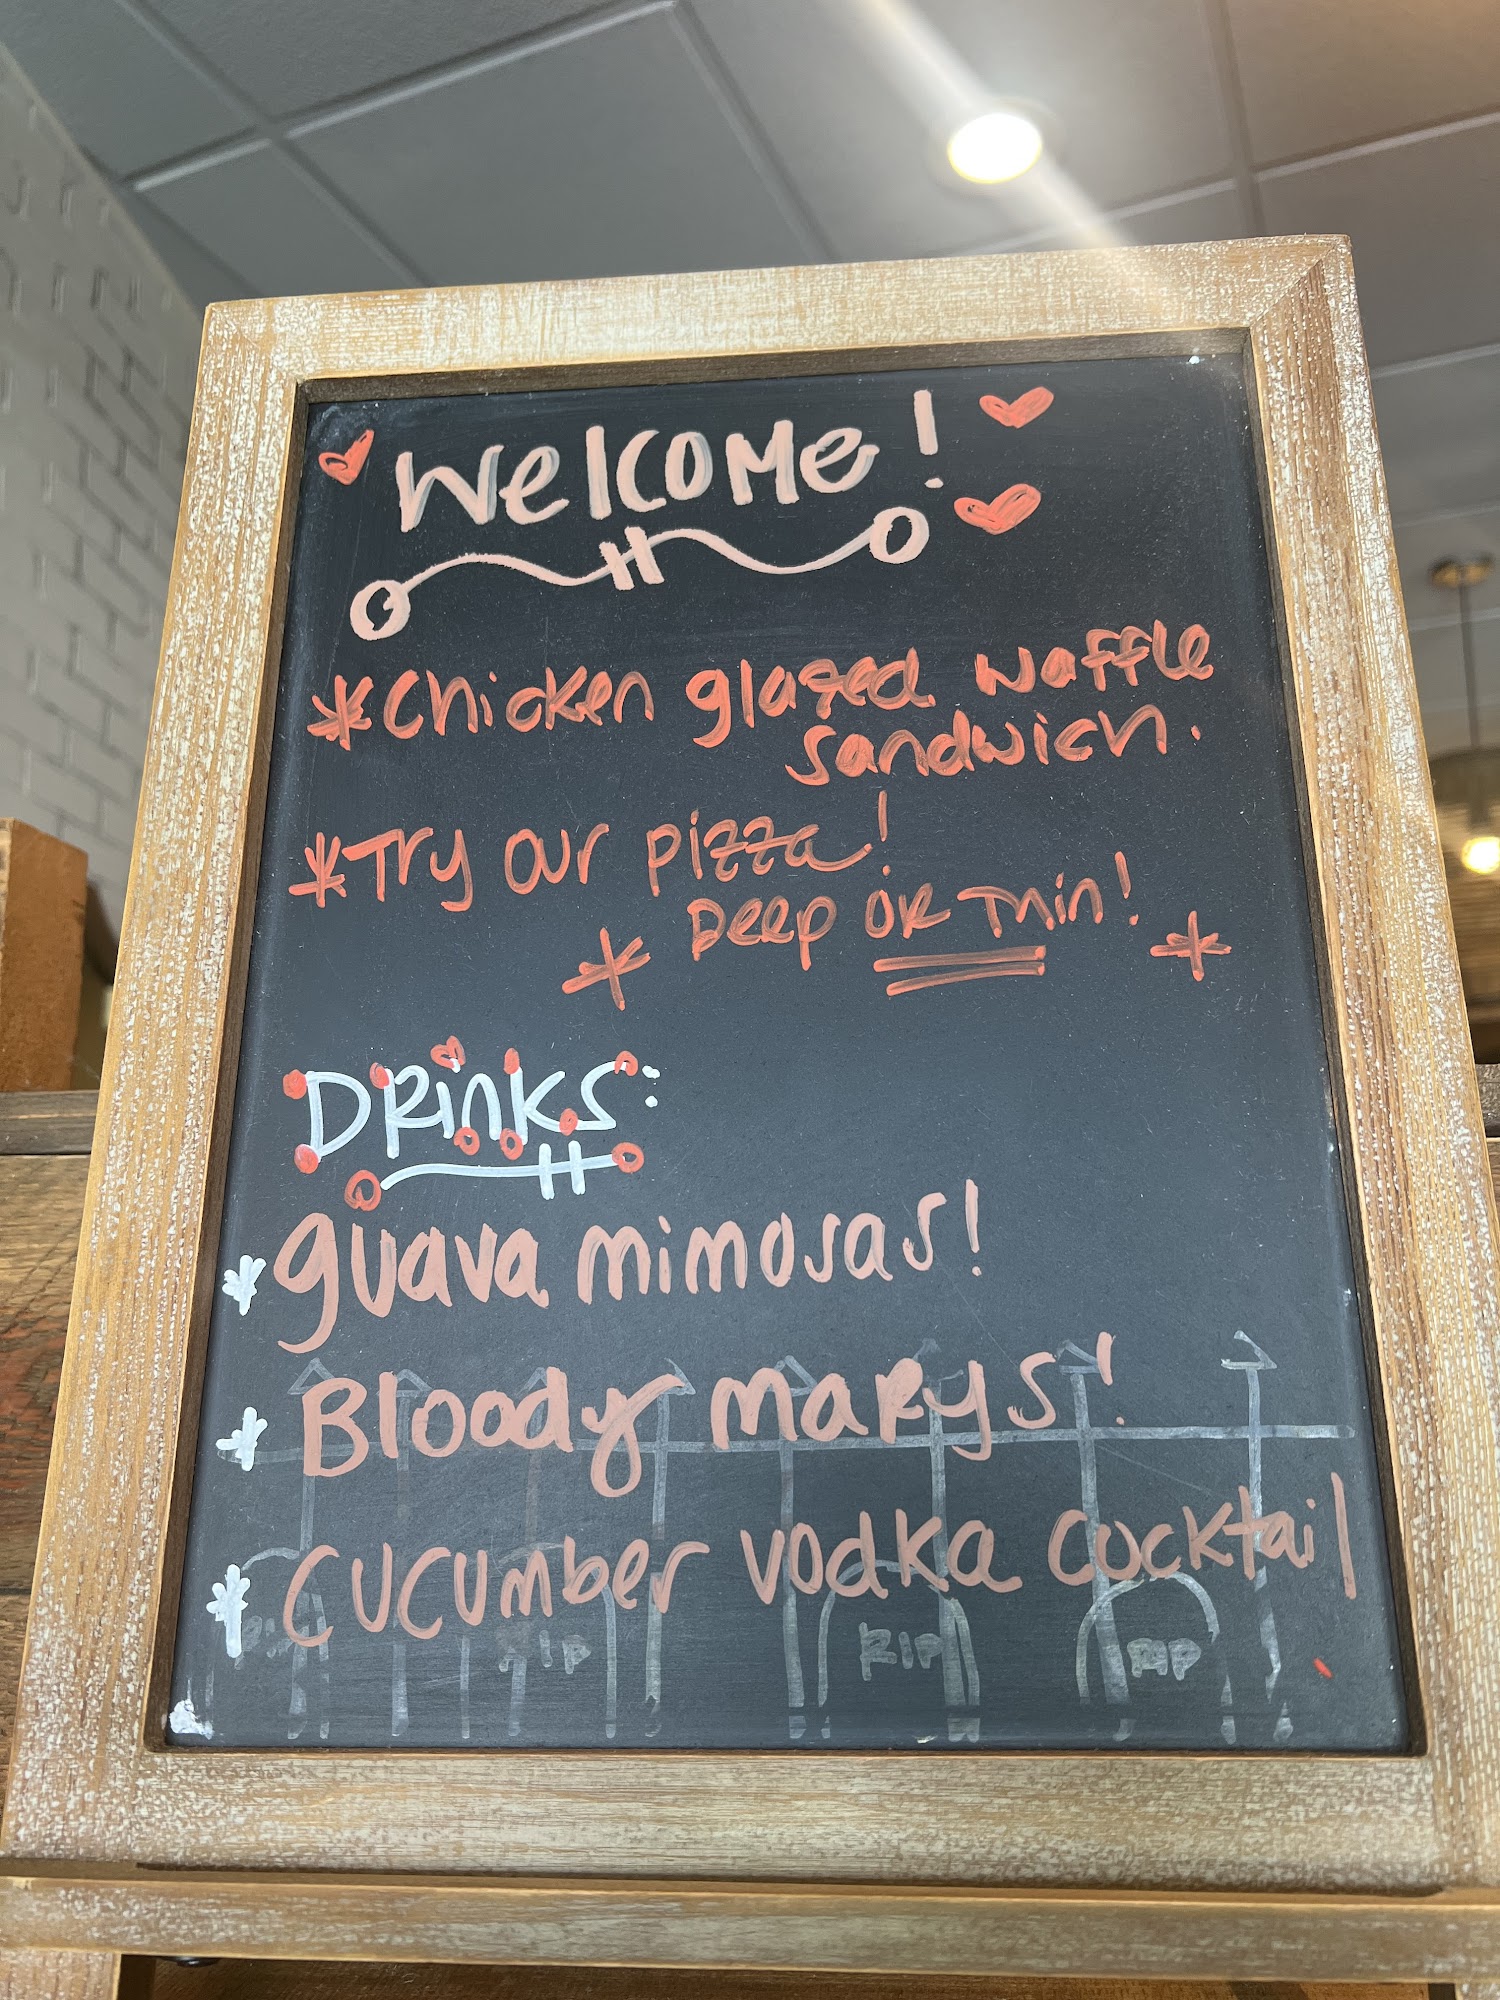 Welcome!
*Chicken glazed waffle
sandwich.
*Try our pizza!
* Deep OR Thin! *
DRinKS:
* guava mimosas!
* Bloody maRys!
* cucumber vodka cocktail
Rip Rip Rip